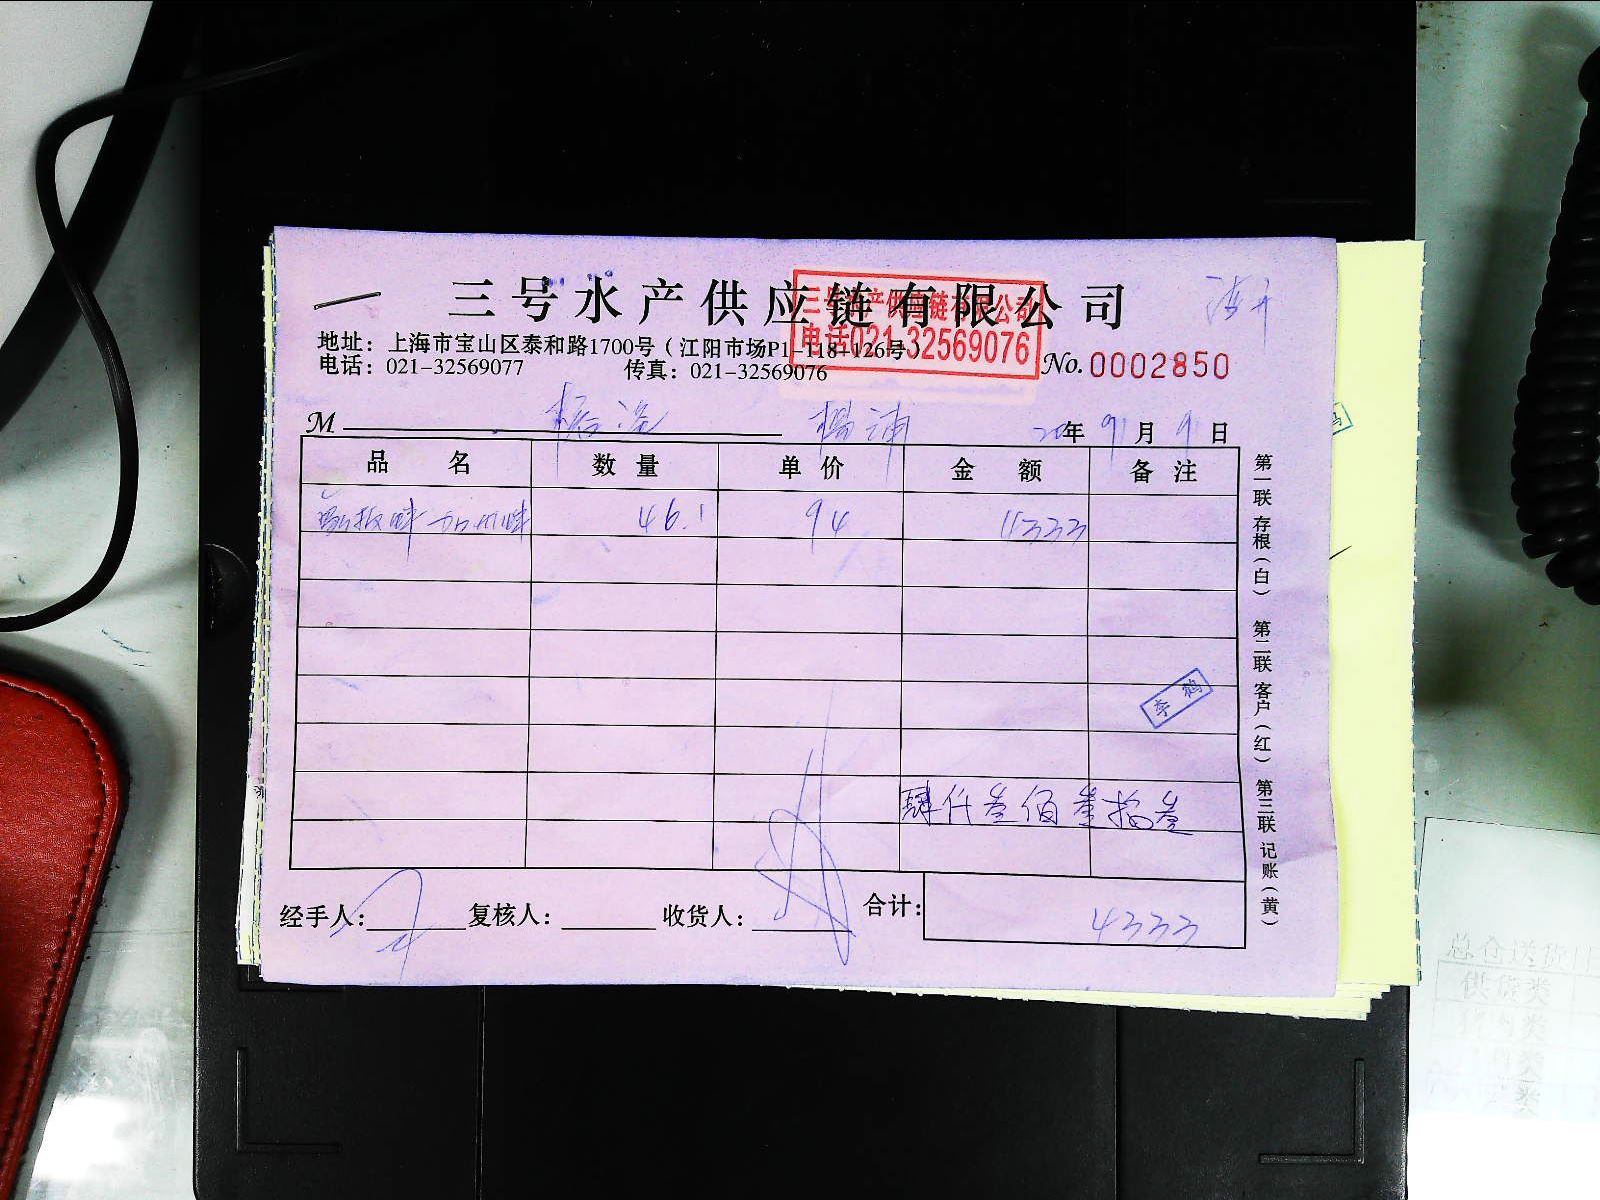 三号水产供应链有限公司
三号水产供应链有限公司
电话021-32569076
地址：上海市宝山区泰和路1700号（江阳市场P1-118+126号）
电话：021-32569077 传真：021-32569076
No.0002850
M 杨浦 20年 9月 9日
品名 数量 单价 金额 备注
46.1 94 4333
李鹤
肆仟叁佰叁拾叁
经手人： 复核人： 收货人： 合计： 4333
第一联 存根（白） 第二联 客户（红） 第三联 记账（黄）
供货类